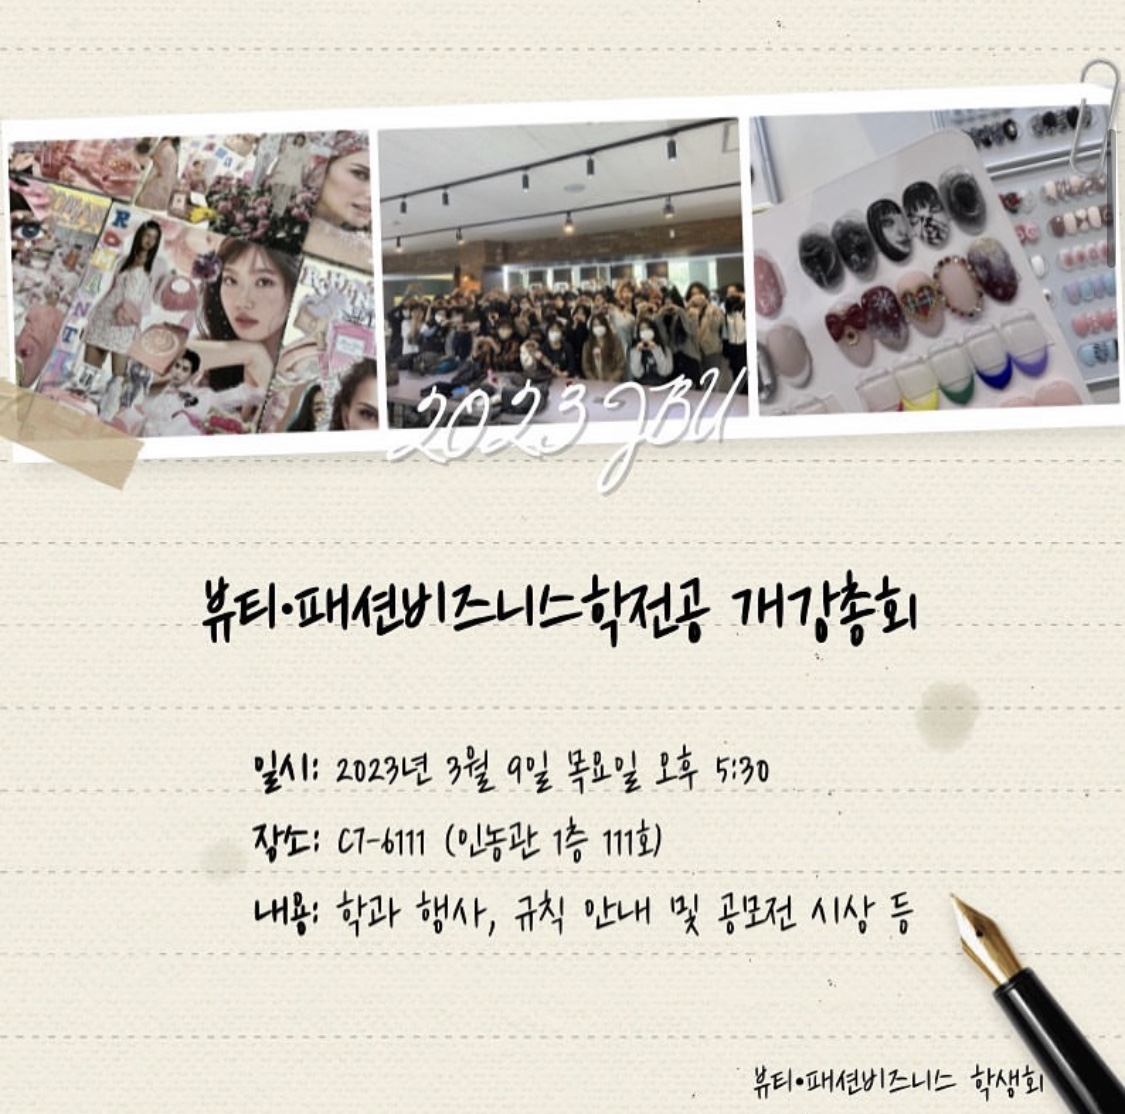 ROMANTIC
2023 JBU
뷰티•패션비즈니스학전공 개강총회
일시: 2023년 3월 9일 목요일 오후 5:30
장소: C7-6111 (인농관 1층 111호)
내용: 학과 행사, 규칙 안내 및 공모전 시상 등
뷰티•패션비즈니스 학생회